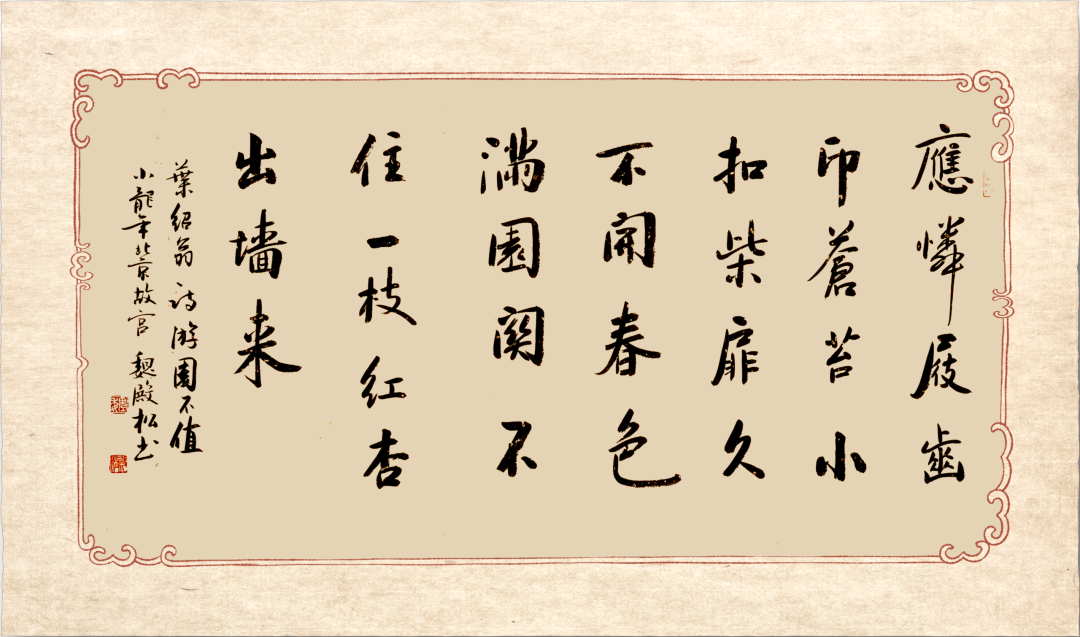 應憐屐齒
印蒼苔小
扣柴扉久
不開春色
滿園関不
住一枝红杏
出墙来
葉绍翁诗游園不值
小龍年北京故宫魏殿松书